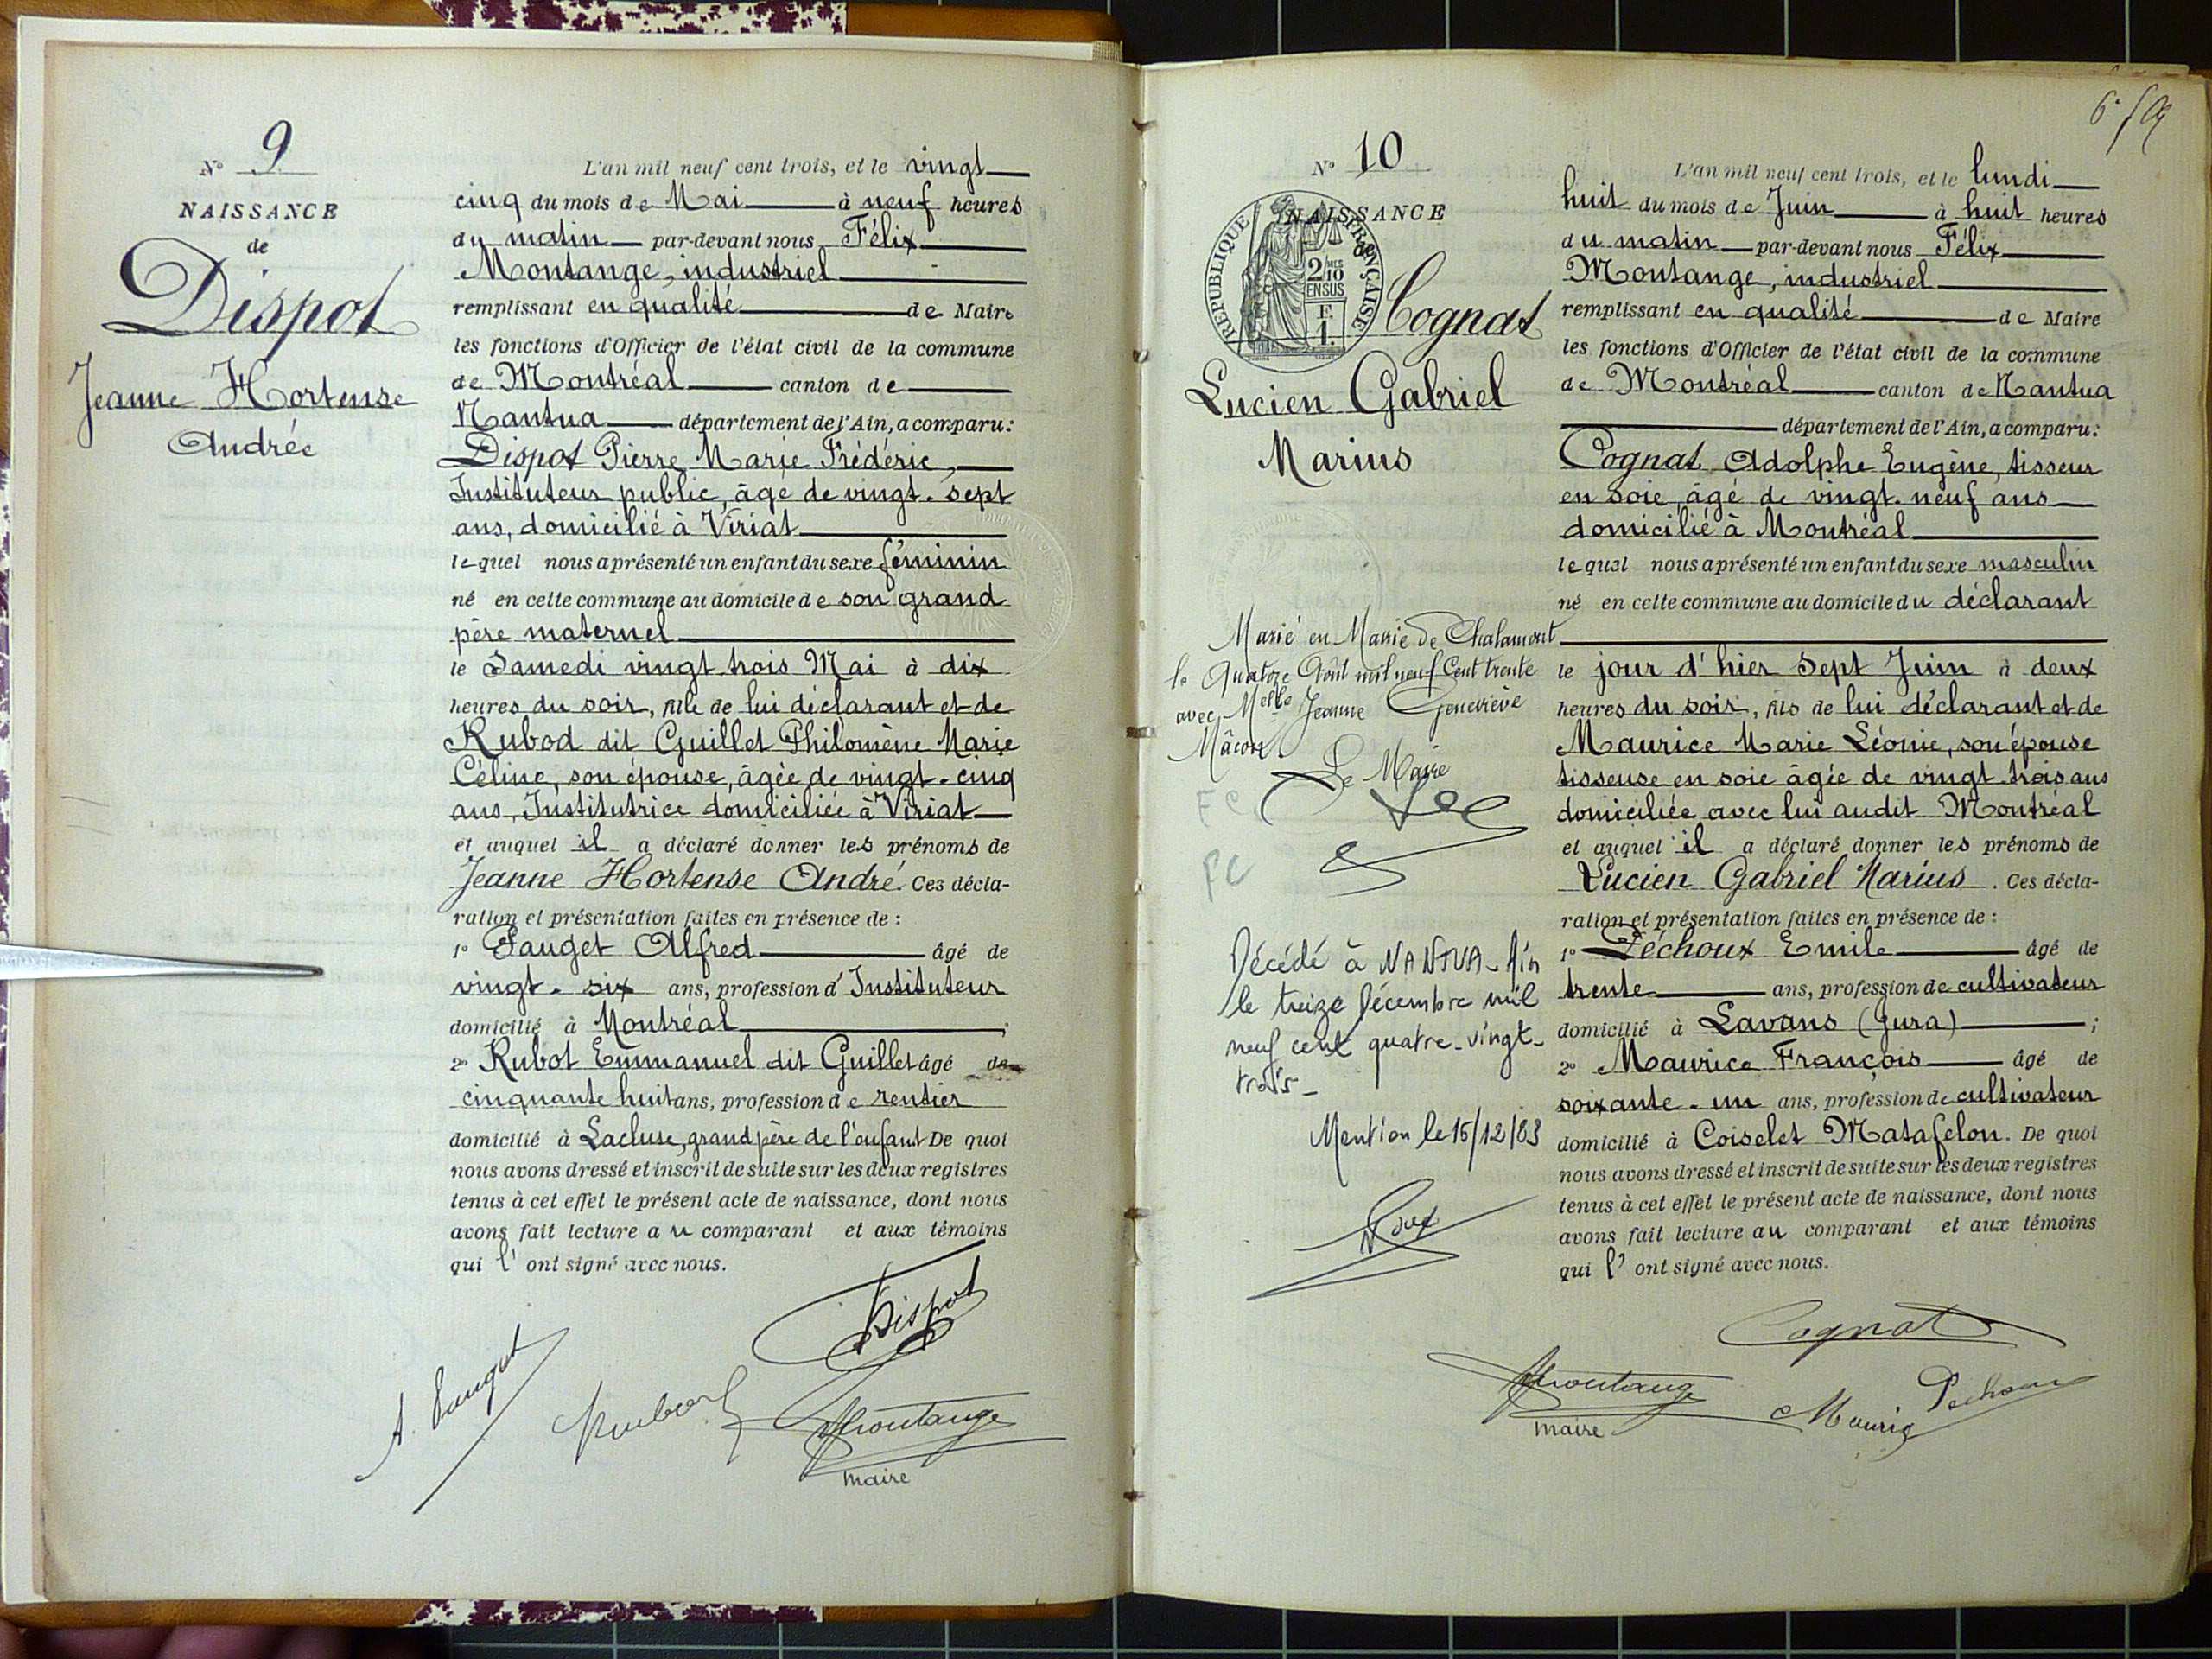 N° 9
NAISSANCE
de
Dispot
Jeanne Hortense
Andrée
L'an mil neuf cent trois, et le vingt
cinq du mois de Mai à neuf heures
du matin par-devant nous Félix
Montange, industriel
remplissant en qualité de Maire
les fonctions d'Officier de l'état civil de la commune
de Montréal canton de
Nantua département de l'Ain, a comparu:
Dispot Pierre Marie Frédéric,
Instituteur public, âgé de vingt-sept
ans, domicilié à Viriat
lequel nous a présenté un enfant du sexe féminin
né en cette commune au domicile de son grand
père maternel
le Samedi vingt trois Mai à dix
heures du soir, fille de lui déclarant et de
Rubod dit Guillet Philomène Marie
Céline, son épouse, âgée de vingt-cinq
ans, Institutrice domiciliée à Viriat
et auquel il a déclaré donner les prénoms de
Jeanne Hortense André. Ces décla-
ration et présentation faites en présence de :
1° Fauget Alfred âgé de
vingt-six ans, profession d'Instituteur
domicilié à Montréal ;
2° Rubot Emmanuel dit Guillet âgé de
cinquante huit ans, profession de rentier
domicilié à Lacluse, grand père de l'enfant De quoi
nous avons dressé et inscrit de suite sur les deux registres
tenus à cet effet le présent acte de naissance, dont nous
avons fait lecture au comparant et aux témoins
qui l'ont signé avec nous.
Dispot
Montange
maire
N° 10
NAISSANCE
de
RÉPUBLIQUE FRANÇAISE
2/10 MES
EN SUS
F.
1.
Cognat
Lucien Gabriel
Marius
Marié en Mairie de Chalamont
le Quatorze Août mil neuf Cent trente
avec Melle Jeanne Geneviève
Mâcon
Le Maire
FC
FC
Décédé à NANTUA - Ain
le treize Décembre mil
neuf cent quatre-vingt-
trois -
Mention le 15/12/83
L'an mil neuf cent trois, et le lundi
huit du mois de Juin à huit heures
du matin par-devant nous Félix
Montange, industriel
remplissant en qualité de Maire
les fonctions d'Officier de l'état civil de la commune
de Montréal canton de Nantua
département de l'Ain, a comparu:
Cognat Adolphe Eugène, tisseur
en soie, âgé de vingt-neuf ans
domicilié à Montréal
lequel nous a présenté un enfant du sexe masculin
né en cette commune au domicile du déclarant
le jour d'hier sept Juin à deux
heures du soir, fils de lui déclarant et de
Maurice Marie Léonie, son épouse
tisseuse en soie âgée de vingt-trois ans
domiciliée avec lui audit Montréal
et auquel il a déclaré donner les prénoms de
Lucien Gabriel Marius. Ces décla-
ration et présentation faites en présence de :
1° Péchoux Emile âgé de
trente ans, profession de cultivateur
domicilié à Lavans (Jura) ;
2° Maurice François âgé de
soixante-un ans, profession de cultivateur
domicilié à Coiselet Matafelon. De quoi
nous avons dressé et inscrit de suite sur les deux registres
tenus à cet effet le présent acte de naissance, dont nous
avons fait lecture au comparant et aux témoins
qui l'ont signé avec nous.
Cognat
Montange
maire